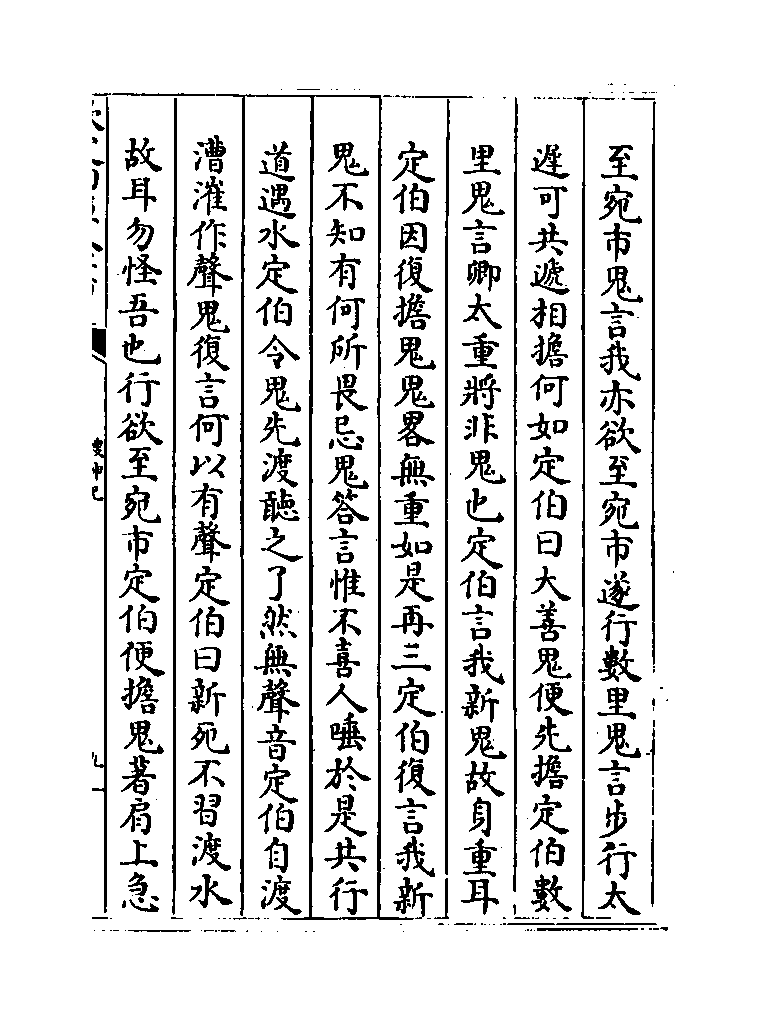 至宛市鬼言我亦欲至宛市遂行數里鬼言步行太
遲可共遞相擔何如定伯曰大善鬼便先擔定伯數
里鬼言卿太重將非鬼也定伯言我新鬼故身重耳
定伯因復擔鬼鬼畧無重如是再三定伯復言我新
鬼不知有何所畏忌鬼答言惟不喜人唾於是共行
道遇水定伯令鬼先渡聽之了然無聲音定伯自渡
漕漼作聲鬼復言何以有聲定伯曰新死不習渡水
故耳勿怪吾也行欲至宛市定伯便擔鬼著肩上急
搜神記